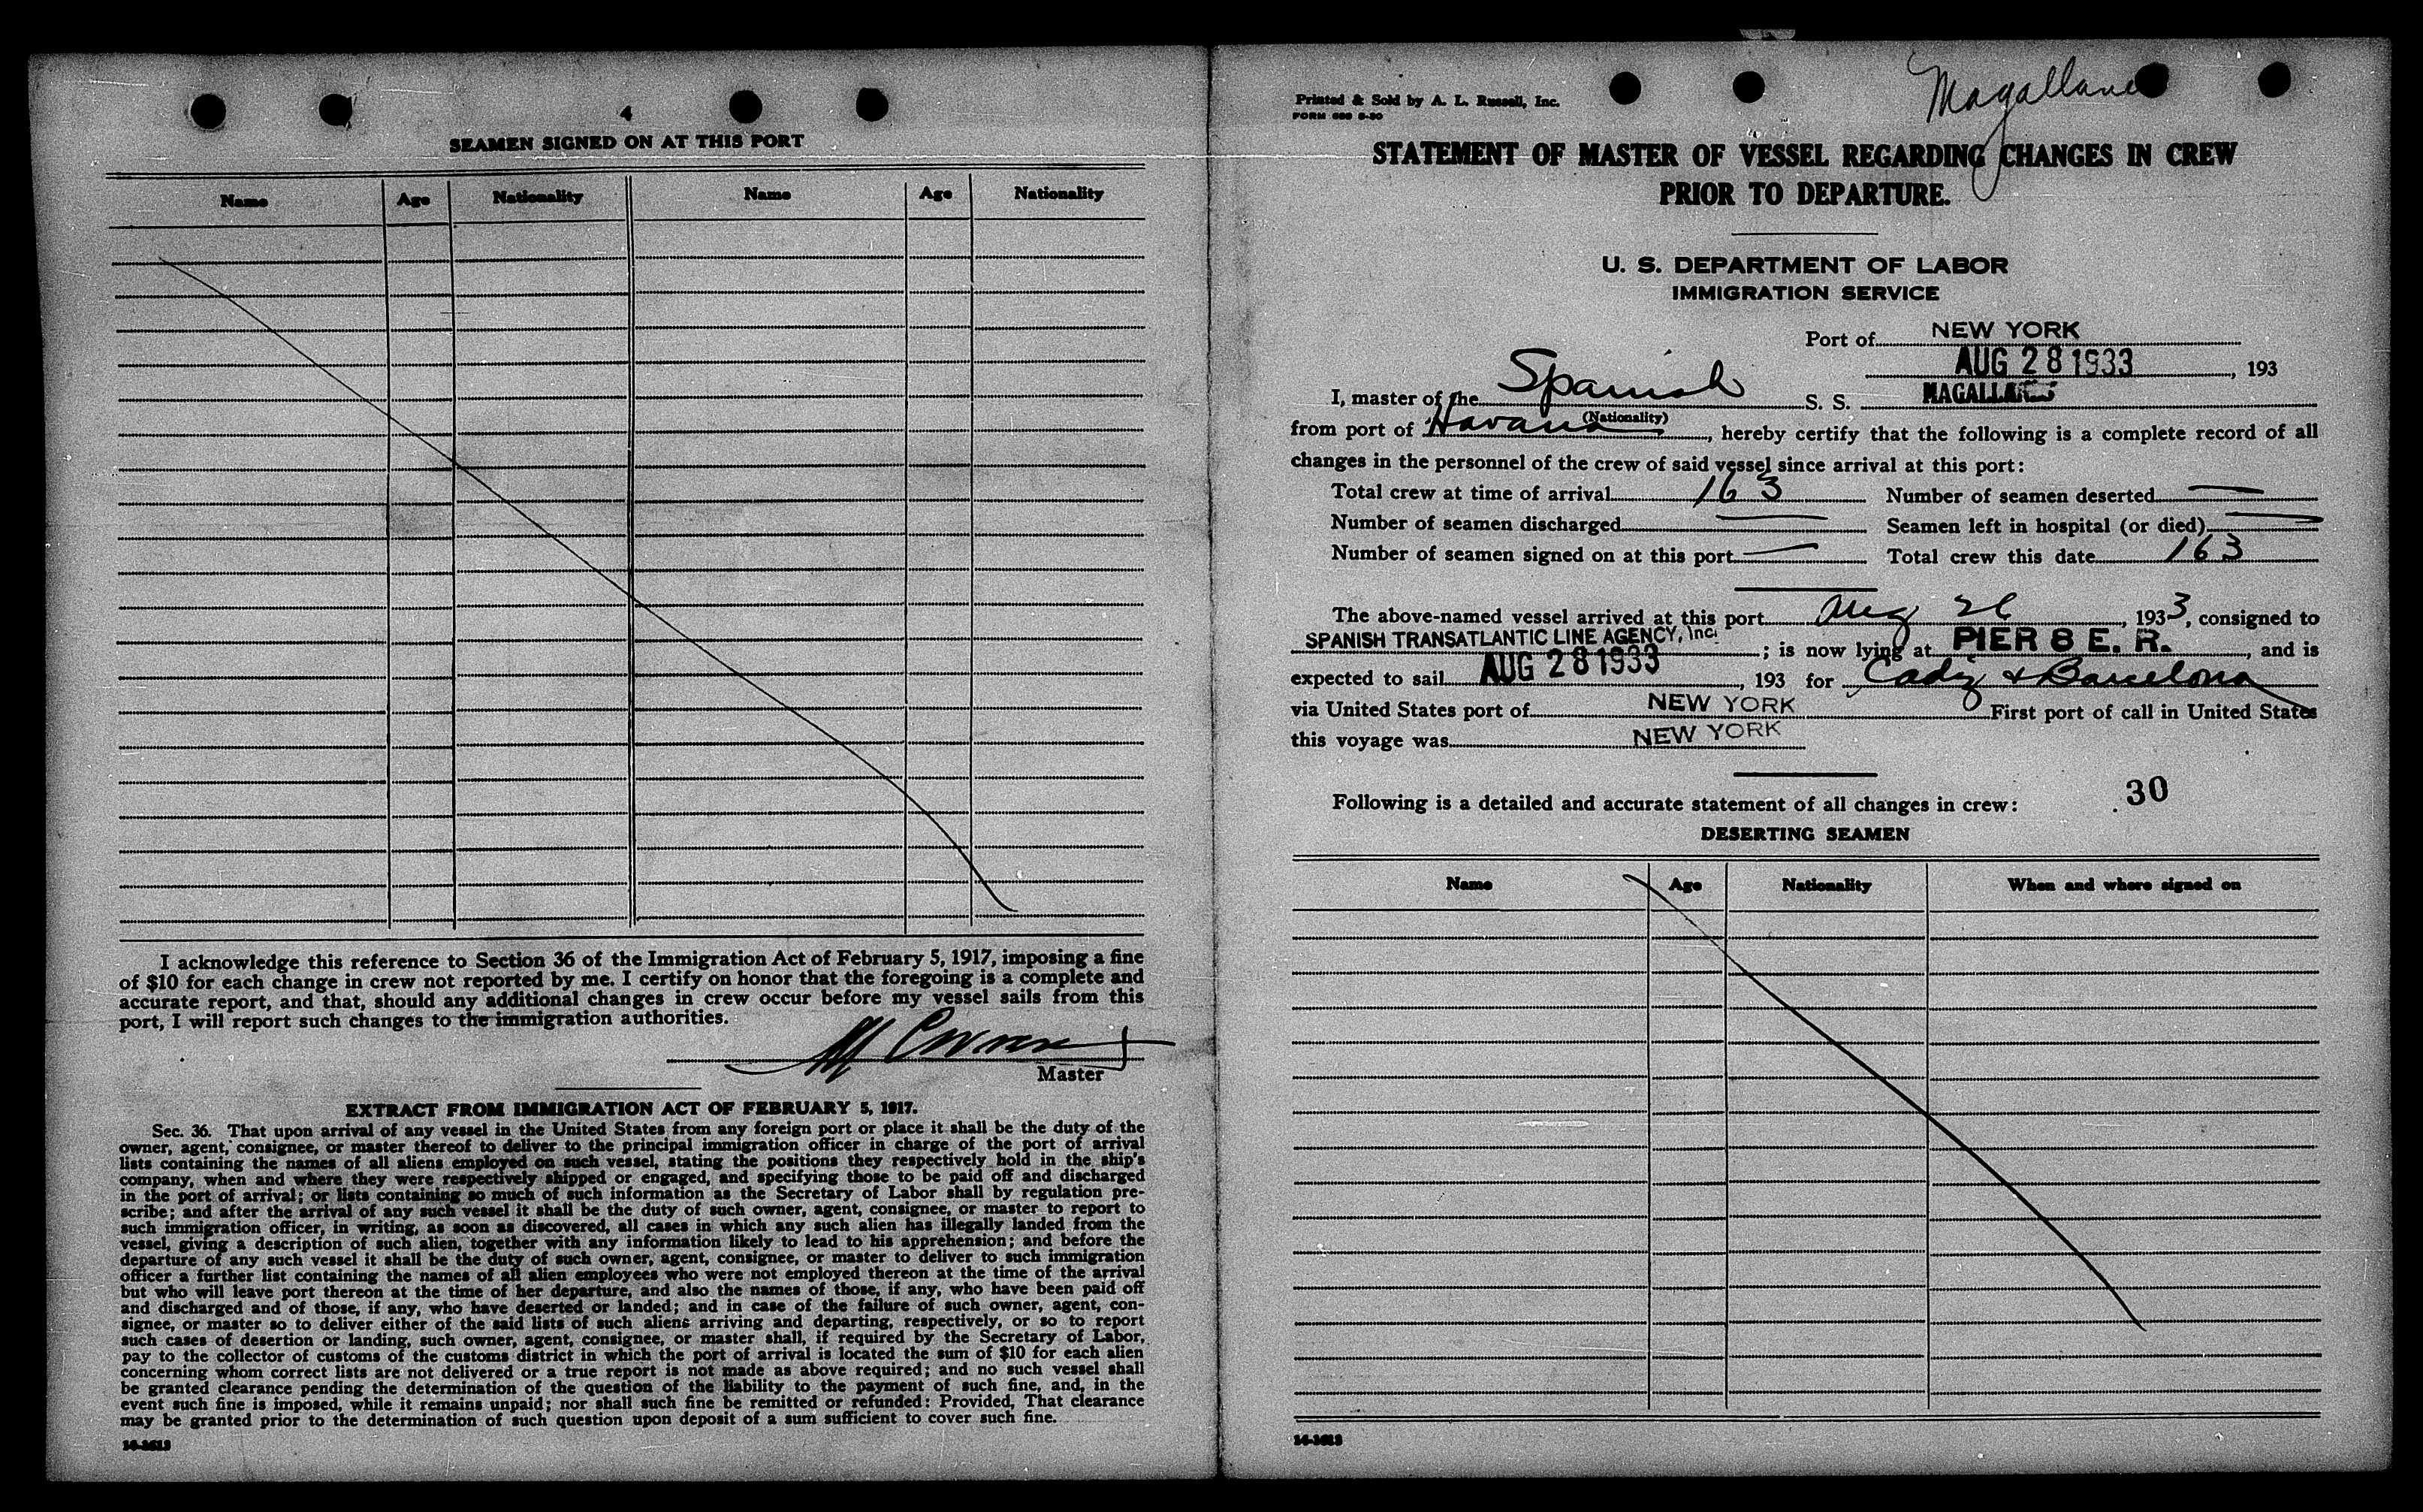 4
SEAMEN SIGNED ON AT THIS PORT
Name Age Nationality Name Age Nationality
I acknowledge this reference to Section 36 of the Immigration Act of February 5, 1917, imposing a fine
of $10 for each change in crew not reported by me. I certify on honor that the foregoing is a complete and
accurate report, and that, should any additional changes in crew occur before my vessel sails from this
port, I will report such changes to the immigration authorities.
Master
EXTRACT FROM IMMIGRATION ACT OF FEBRUARY 5, 1917.
Sec. 36. That upon arrival of any vessel in the United States from any foreign port or place it shall be the duty of the
owner, agent, consignee, or master thereof to deliver to the principal immigration officer in charge of the port of arrival
lists containing the names of all aliens employed on such vessel, stating the positions they respectively hold in the ship's
company, when and where they were respectively shipped or engaged, and specifying those to be paid off and discharged
in the port of arrival; or lists containing so much of such information as the Secretary of Labor shall by regulation pre-
scribe; and after the arrival of any such vessel it shall be the duty of such owner, agent, consignee, or master to report to
such immigration officer, in writing, as soon as discovered, all cases in which any such alien has illegally landed from the
vessel, giving a description of such alien, together with any information likely to lead to his apprehension; and before the
departure of any such vessel it shall be the duty of such owner, agent, consignee, or master to deliver to such immigration
officer a further list containing the names of all alien employees who were not employed thereon at the time of the arrival
but who will leave port thereon at the time of her departure, and also the names of those, if any, who have been paid off
and discharged and of those, if any, who have deserted or landed; and in case of the failure of such owner, agent, con-
signee, or master so to deliver either of the said lists of such aliens arriving and departing, respectively, or so to report
such cases of desertion or landing, such owner, agent, consignee, or master shall, if required by the Secretary of Labor,
pay to the collector of customs of the customs district in which the port of arrival is located the sum of $10 for each alien
concerning whom correct lists are not delivered or a true report is not made as above required; and no such vessel shall
be granted clearance pending the determination of the question of the liability to the payment of such fine, and, in the
event such fine is imposed, while it remains unpaid; nor shall such fine be remitted or refunded: Provided, That clearance
may be granted prior to the determination of such question upon deposit of a sum sufficient to cover such fine.
14-1613
Magallanes
Printed & Sold by A. L. Russell, Inc.
STATEMENT OF MASTER OF VESSEL REGARDING CHANGES IN CREW
PRIOR TO DEPARTURE.
U. S. DEPARTMENT OF LABOR
IMMIGRATION SERVICE
Port of NEW YORK
AUG 28 1933, 193
I, master of the Spanish S. S. MAGALLANES
(Nationality)
from port of Havana, hereby certify that the following is a complete record of all
changes in the personnel of the crew of said vessel since arrival at this port:
Total crew at time of arrival 163 Number of seamen deserted —
Number of seamen discharged — Seamen left in hospital (or died) —
Number of seamen signed on at this port — Total crew this date 163
The above-named vessel arrived at this port Aug 26, 1933, consigned to
SPANISH TRANSATLANTIC LINE AGENCY, Inc. ; is now lying at PIER 8 E. R., and is
expected to sail AUG 28 1933, 193 for Cadiz & Barcelona
via United States port of NEW YORK First port of call in United States
this voyage was NEW YORK
Following is a detailed and accurate statement of all changes in crew: 30
DESERTING SEAMEN
Name Age Nationality When and where signed on
14-1613